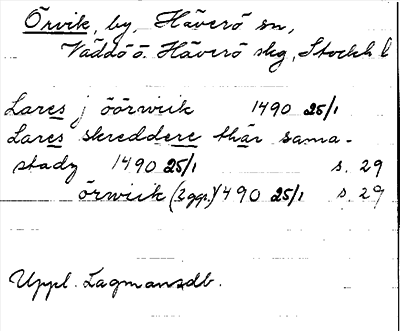 Örvik, by, Häverö sn,
Väddö o. Häverö skg, Stockh l
Lares j öörwiik 1490 25/1
Lares skreddere thär sama-
stadz 1490 25/1 s. 29
örwiik (3 ggr.) 1490 25/1 s. 29
Uppl. Lagmansdb.